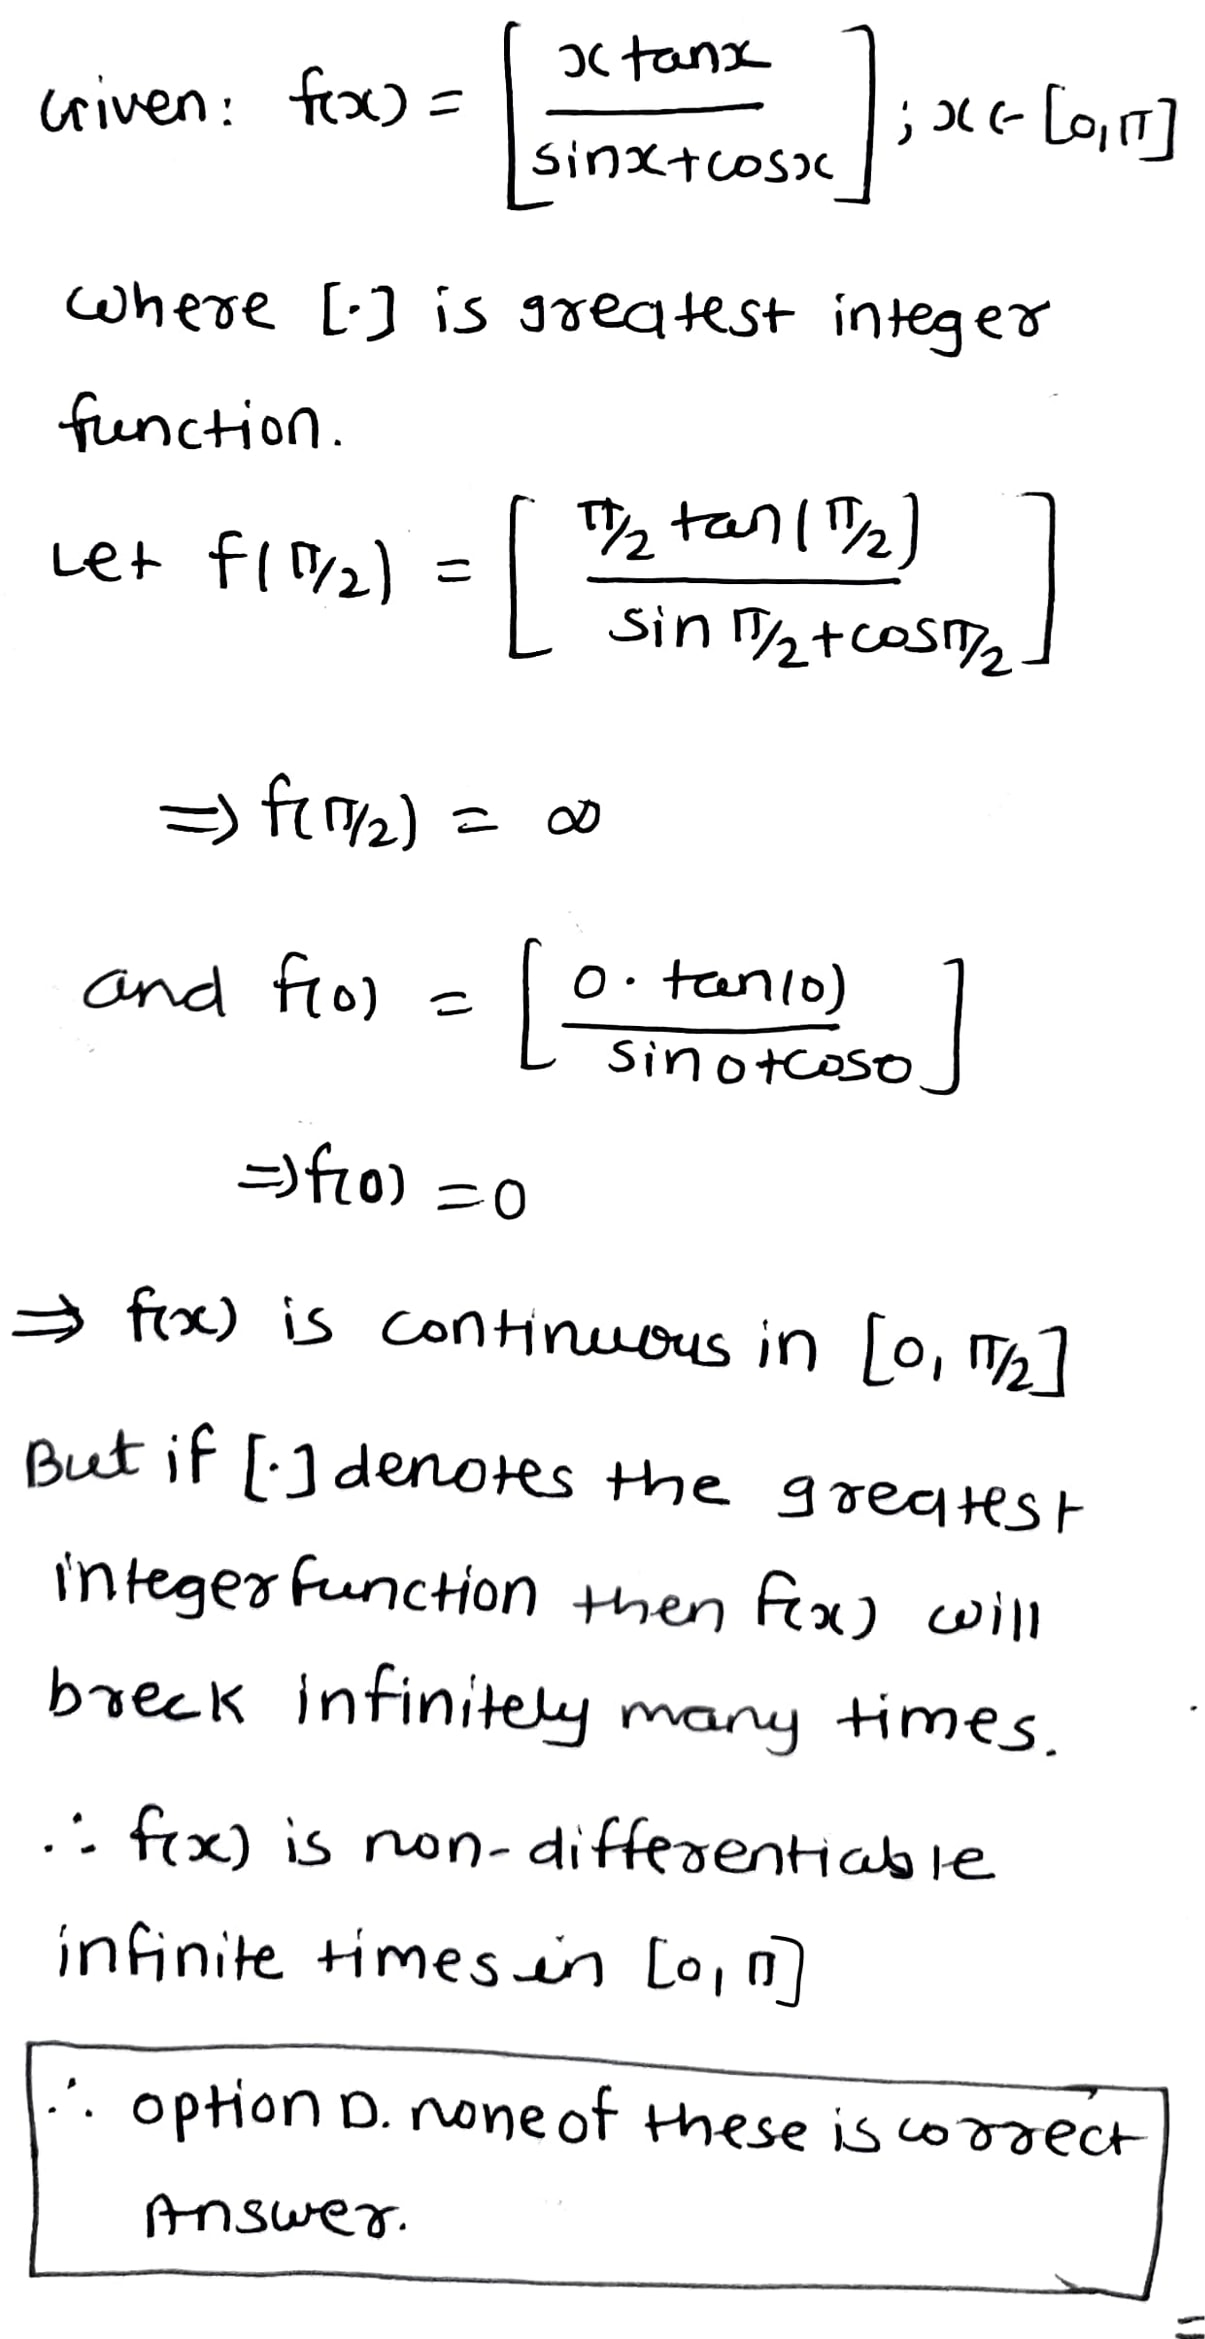 Given: f(x) = [x tanx / sinx+cosx] ; x ∈ [0,π]
where [.] is greatest integer
function.
Let f(π/2) = [π/2 tan(π/2) / sin π/2+cosπ/2]
⇒ f(π/2) = ∞
and f(0) = [0. tan(0) / sin0+cos0]
⇒ f(0) = 0
⇒ f(x) is continuous in [0, π/2]
But if [.] denotes the greatest
integer function then f(x) will
breck infinitely many times.
∴ f(x) is non-differentiable
infinite times in [0,π]
∴ option D. none of these is correct
Answer.